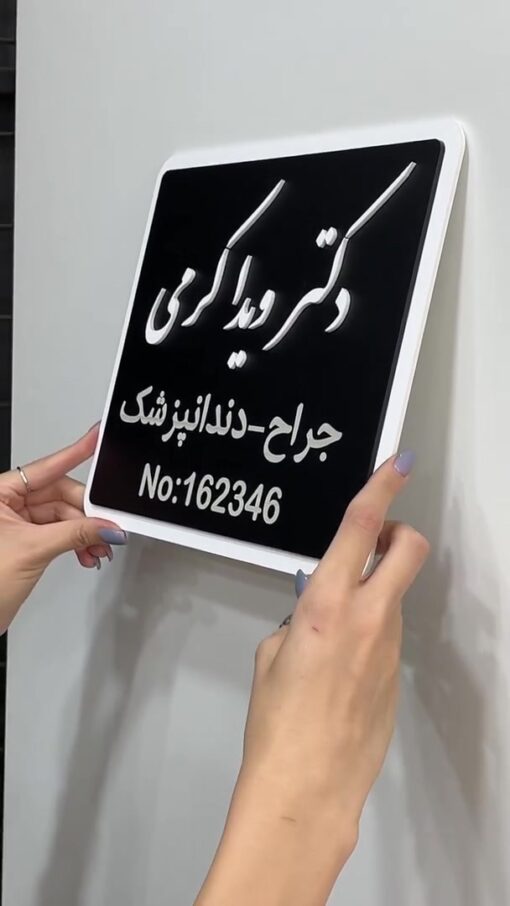 دکتر ویدا کرمی
جراح-دندانپزشک
No:162346